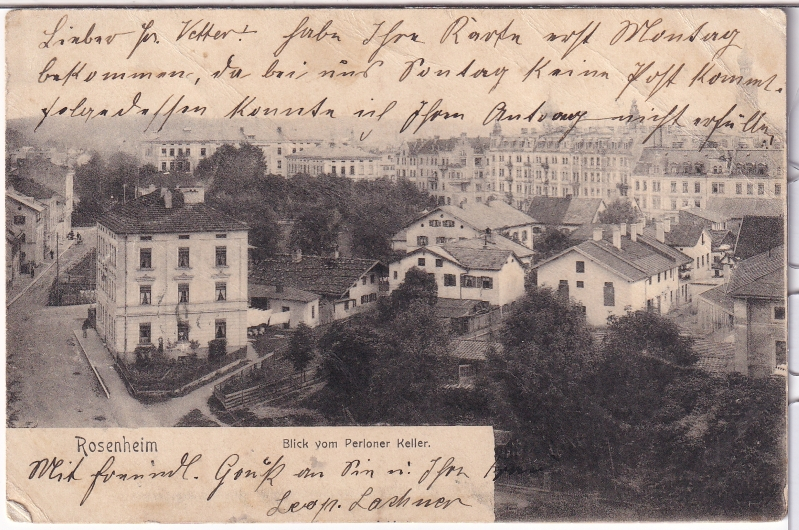 Lieber Hr. Vetter! habe Ihre Karte erst Montag
bekommen, da bei uns Sontag keine Post kommt.
folgedessen konnte ich Ihrem Antrag nicht erfüllen
Rosenheim
Blick vom Perloner Keller.
Mit freundl. Gruß an Sie u. Ihre
Leop. Lachner